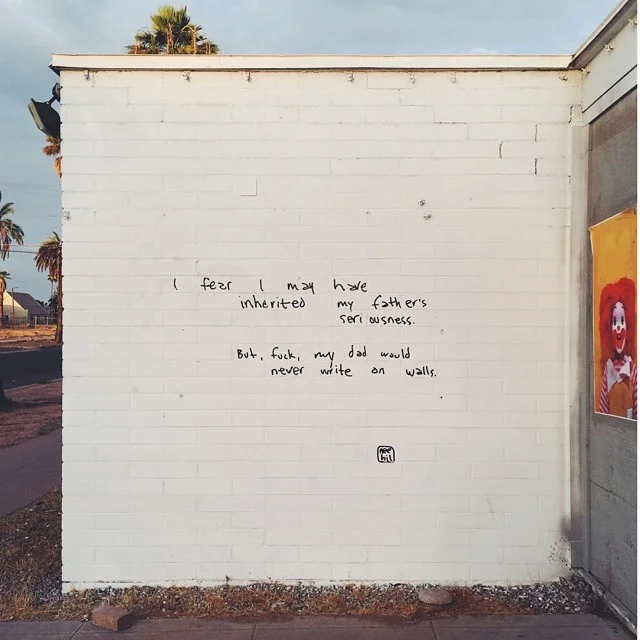 I fear I may have
inherited my father's
seriousness.
But, fuck, my dad would
never write on walls.